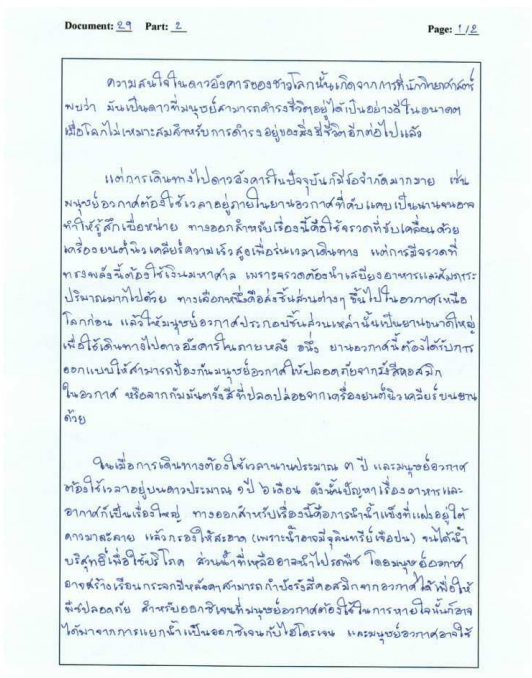 Document: 29 Part: 2 Page: 1/2
ความสนใจในดาวอังคารของชาวโลกนั้นเกิดจากการที่นักวิทยาศาสตร์
พบว่า มันเป็นดาวที่มนุษย์สามารถดำรงชีวิตอยู่ได้เป็นอย่างดีในอนาคต
เมื่อโลกไม่เหมาะสมสำหรับการดำรงอยู่ของสิ่งมีชีวิตอีกต่อไปแล้ว
แต่การเดินทางไปดาวอังคารในปัจจุบันก็มีข้อจำกัดมากมาย เช่น
มนุษย์อวกาศต้องใช้เวลาอยู่ภายในยานอวกาศที่คับแคบเป็นนานจนอาจ
ทำให้รู้สึกเบื่อหน่าย ทางออกสำหรับเรื่องนี้คือใช้จรวดที่ขับเคลื่อนด้วย
เครื่องยนต์นิวเคลียร์ความเร็วสูงเพื่อร่นเวลาเดินทาง แต่การมีจรวดที่
ทรงพลังนี้ต้องใช้เงินมหาศาล เพราะจรวดต้องนำเสบียงอาหารและสัมภาระ
ปริมาณมากไปด้วย ทางเลือกหนึ่งคือส่งชิ้นส่วนต่างๆ ขึ้นไปในอวกาศเหนือ
โลกก่อน แล้วให้มนุษย์อวกาศประกอบชิ้นส่วนเหล่านั้นเป็นยานขนาดใหญ่
เพื่อใช้เดินทางไปดาวอังคารในภายหลัง อนึ่ง ยานอวกาศนี้ต้องได้รับการ
ออกแบบให้สามารถป้องกันมนุษย์อวกาศให้ปลอดภัยจากรังสีคอสมิก
ในอวกาศ หรือจากกัมมันตรังสีที่ปลดปล่อยจากเครื่องยนต์นิวเคลียร์บนยาน
ด้วย
ในเมื่อการเดินทางต้องใช้เวลานานประมาณ ๓ ปี และมนุษย์อวกาศ
ต้องใช้เวลาอยู่บนดาวประมาณ ๑ปี ๖เดือน ดังนั้นปัญหาเรื่องอาหารและ
อากาศก็เป็นเรื่องใหญ่ ทางออกสำหรับเรื่องนี้คือการนำน้ำแข็งที่แฝงอยู่ใต้
ดาวมาละลาย แล้วกรองให้สะอาด (เพราะน้ำอาจมีจุลินทรีย์เจือปน) จนได้น้ำ
บริสุทธิ์เพื่อใช้บริโภค ส่วนน้ำที่เหลืออาจนำไปรดพืช โดยมนุษย์อวกาศ
อาจสร้างเรือนกระจกมีหลังคาสามารถกำบังรังสีคอสมิกจากอวกาศได้เพื่อให้
พืชปลอดภัย สำหรับออกซิเจนที่มนุษย์อวกาศต้องใช้ในการหายใจนั้นก็อาจ
ได้มาจากการแยกน้ำเป็นออกซิเจนกับไฮโดรเจน และมนุษย์อวกาศอาจใช้